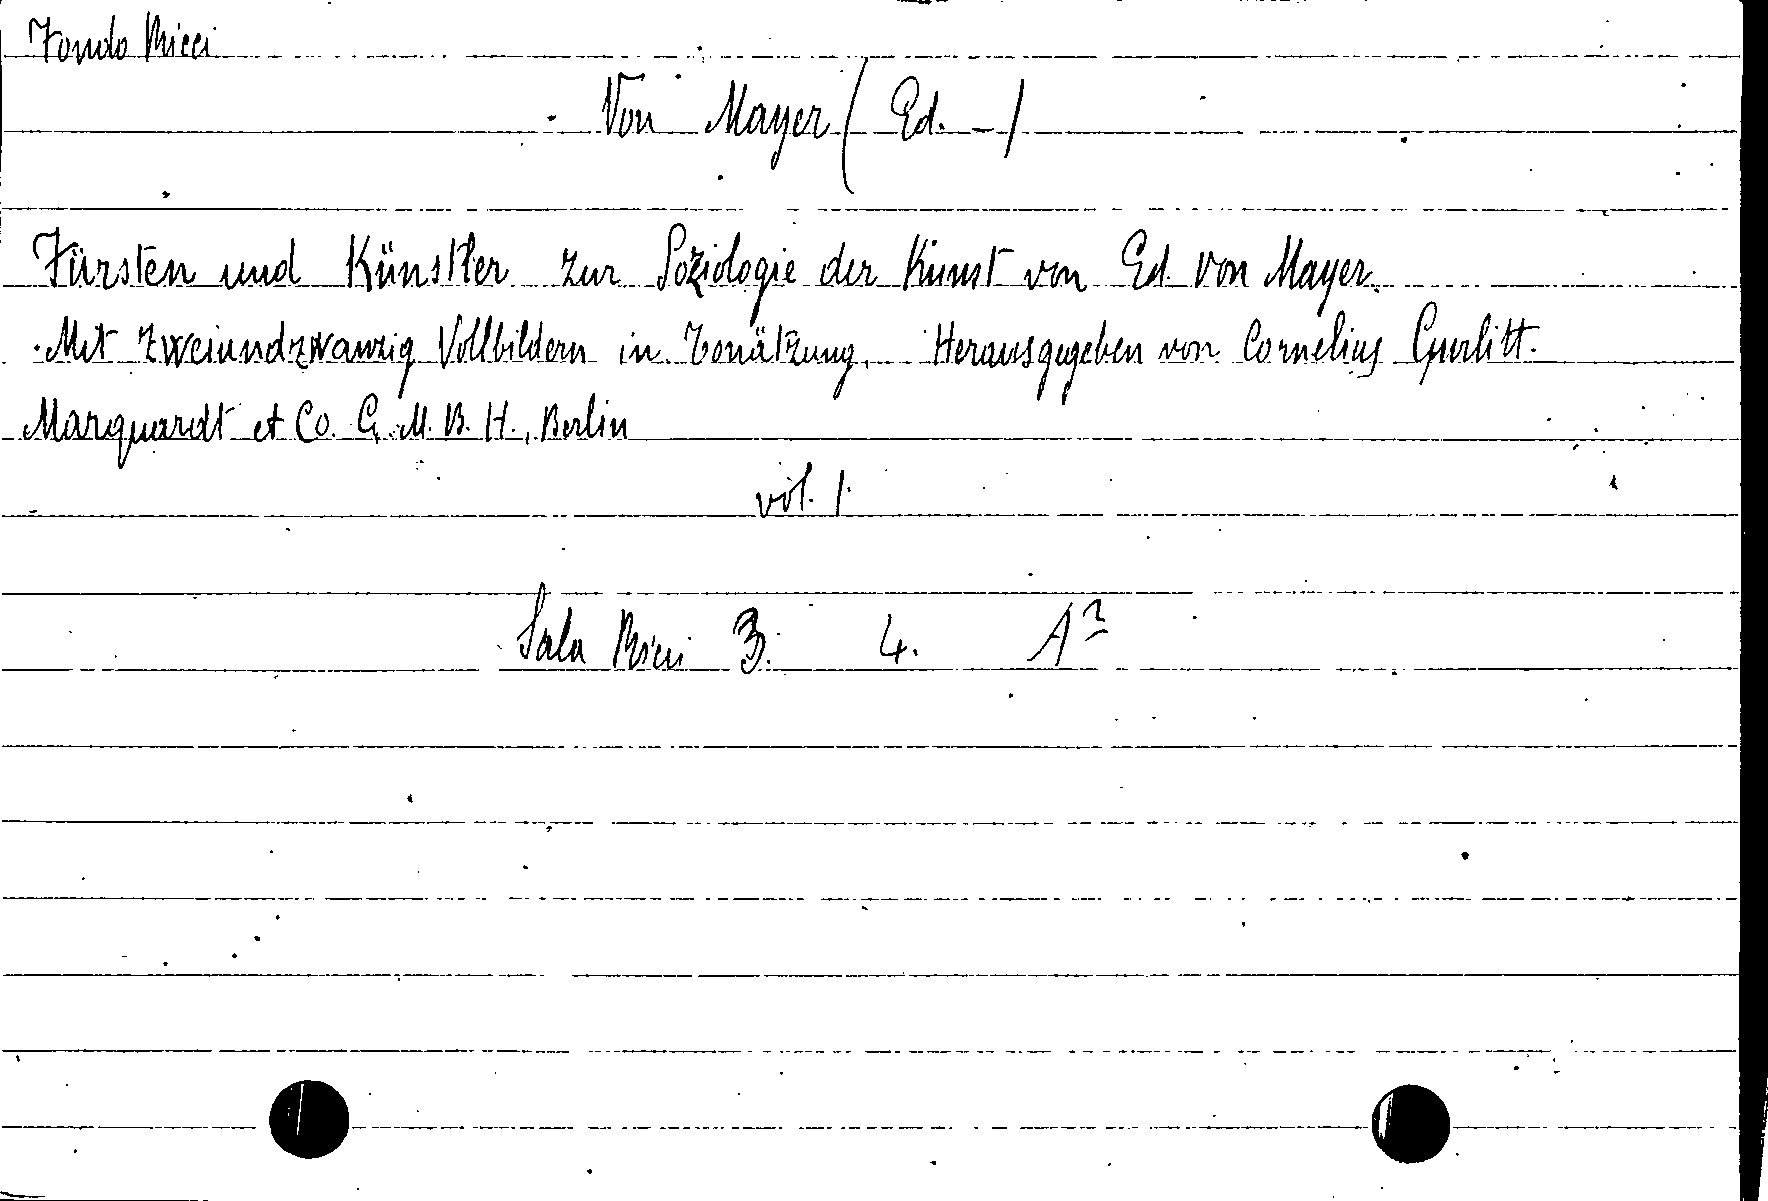 Fondo Ricci
Von Mayer (Ed. -)
Fürsten und Künstler zur Soziologie der Kunst von Ed. von Mayer.
Mit zweiundzwanzig Vollbildern in Tonätzung. Herausgegeben von Cornelius Gurlitt.
Marquardt et Co. G. M. B. H., Berlin
vol. 1.
Sala Ricci 3. 4. A²